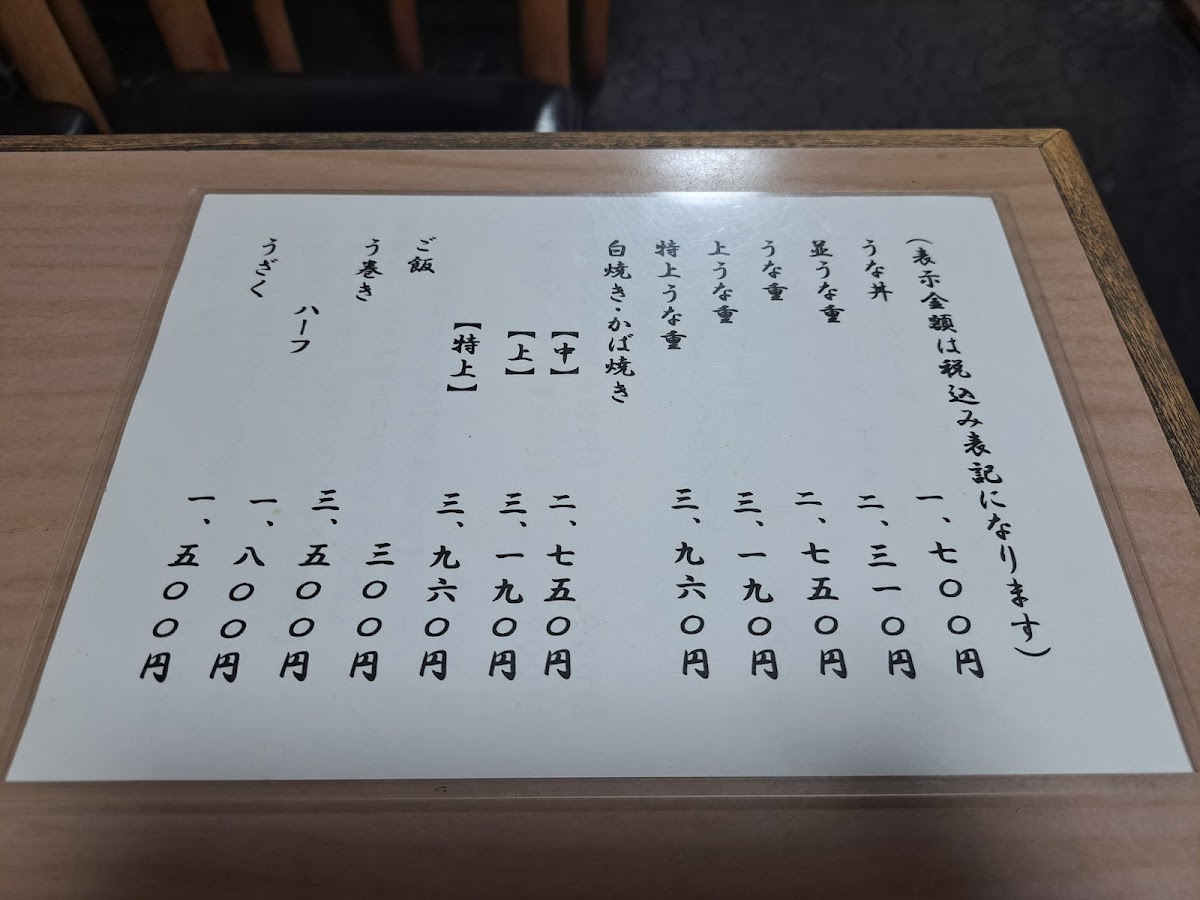 (表示金額は税込み表記になります)
うな丼 一、七〇〇円
並うな重 二、三一〇円
うな重 二、七五〇円
上うな重 三、一九〇円
特上うな重 三、九六〇円
白焼き・かば焼き
【中】 二、七五〇円
【上】 三、一九〇円
【特上】 三、九六〇円
ご飯 三〇〇円
う巻き 三、五〇〇円
ハーフ 一、八〇〇円
うざく 一、五〇〇円